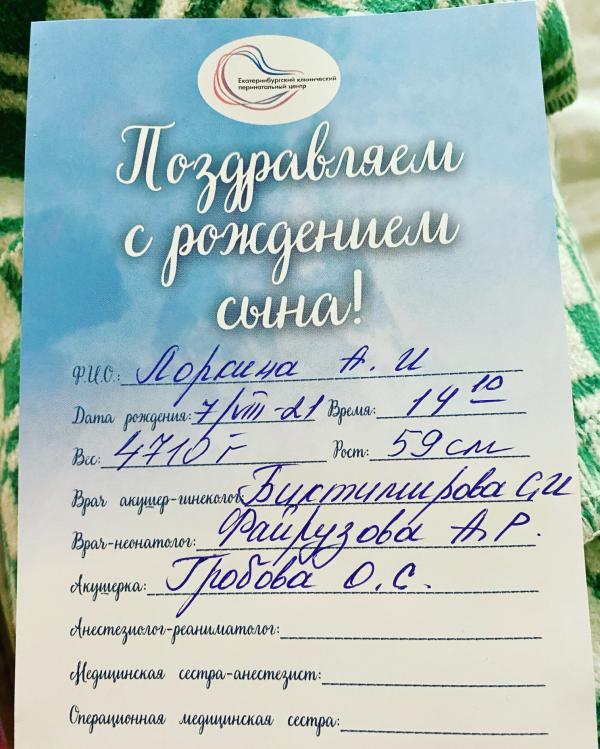 Екатеринбургский клинический
перинатальный центр
Поздравляем
с рождением
сына!
Ф.И.О.: Лоркина А. И
Дата рождения: 7/VIII-21 Время: 14 10
Вес: 4710 г Рост: 59 см
Врач акушер-гинеколог: Биктимирова С,И
Врач-неонатолог: Файрузова А.Р.
Акушерка: Гробова О.С.
Анестезиолог-реаниматолог:
Медицинская сестра-анестезист:
Операционная медицинская сестра: